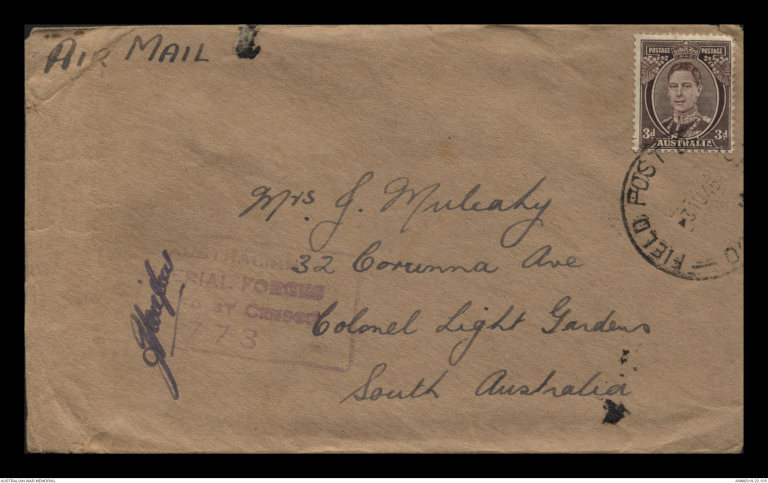 AIR MAIL
POSTAGE POSTAGE
3d 3d
AUSTRALIA
FIELD POST
Mrs J. Mulcahy
32 Corunna Ave
Colonel Light Gardens
South Australia
FORCES
BY CENSOR
773
AUSTRALIAN WAR MEMORIAL